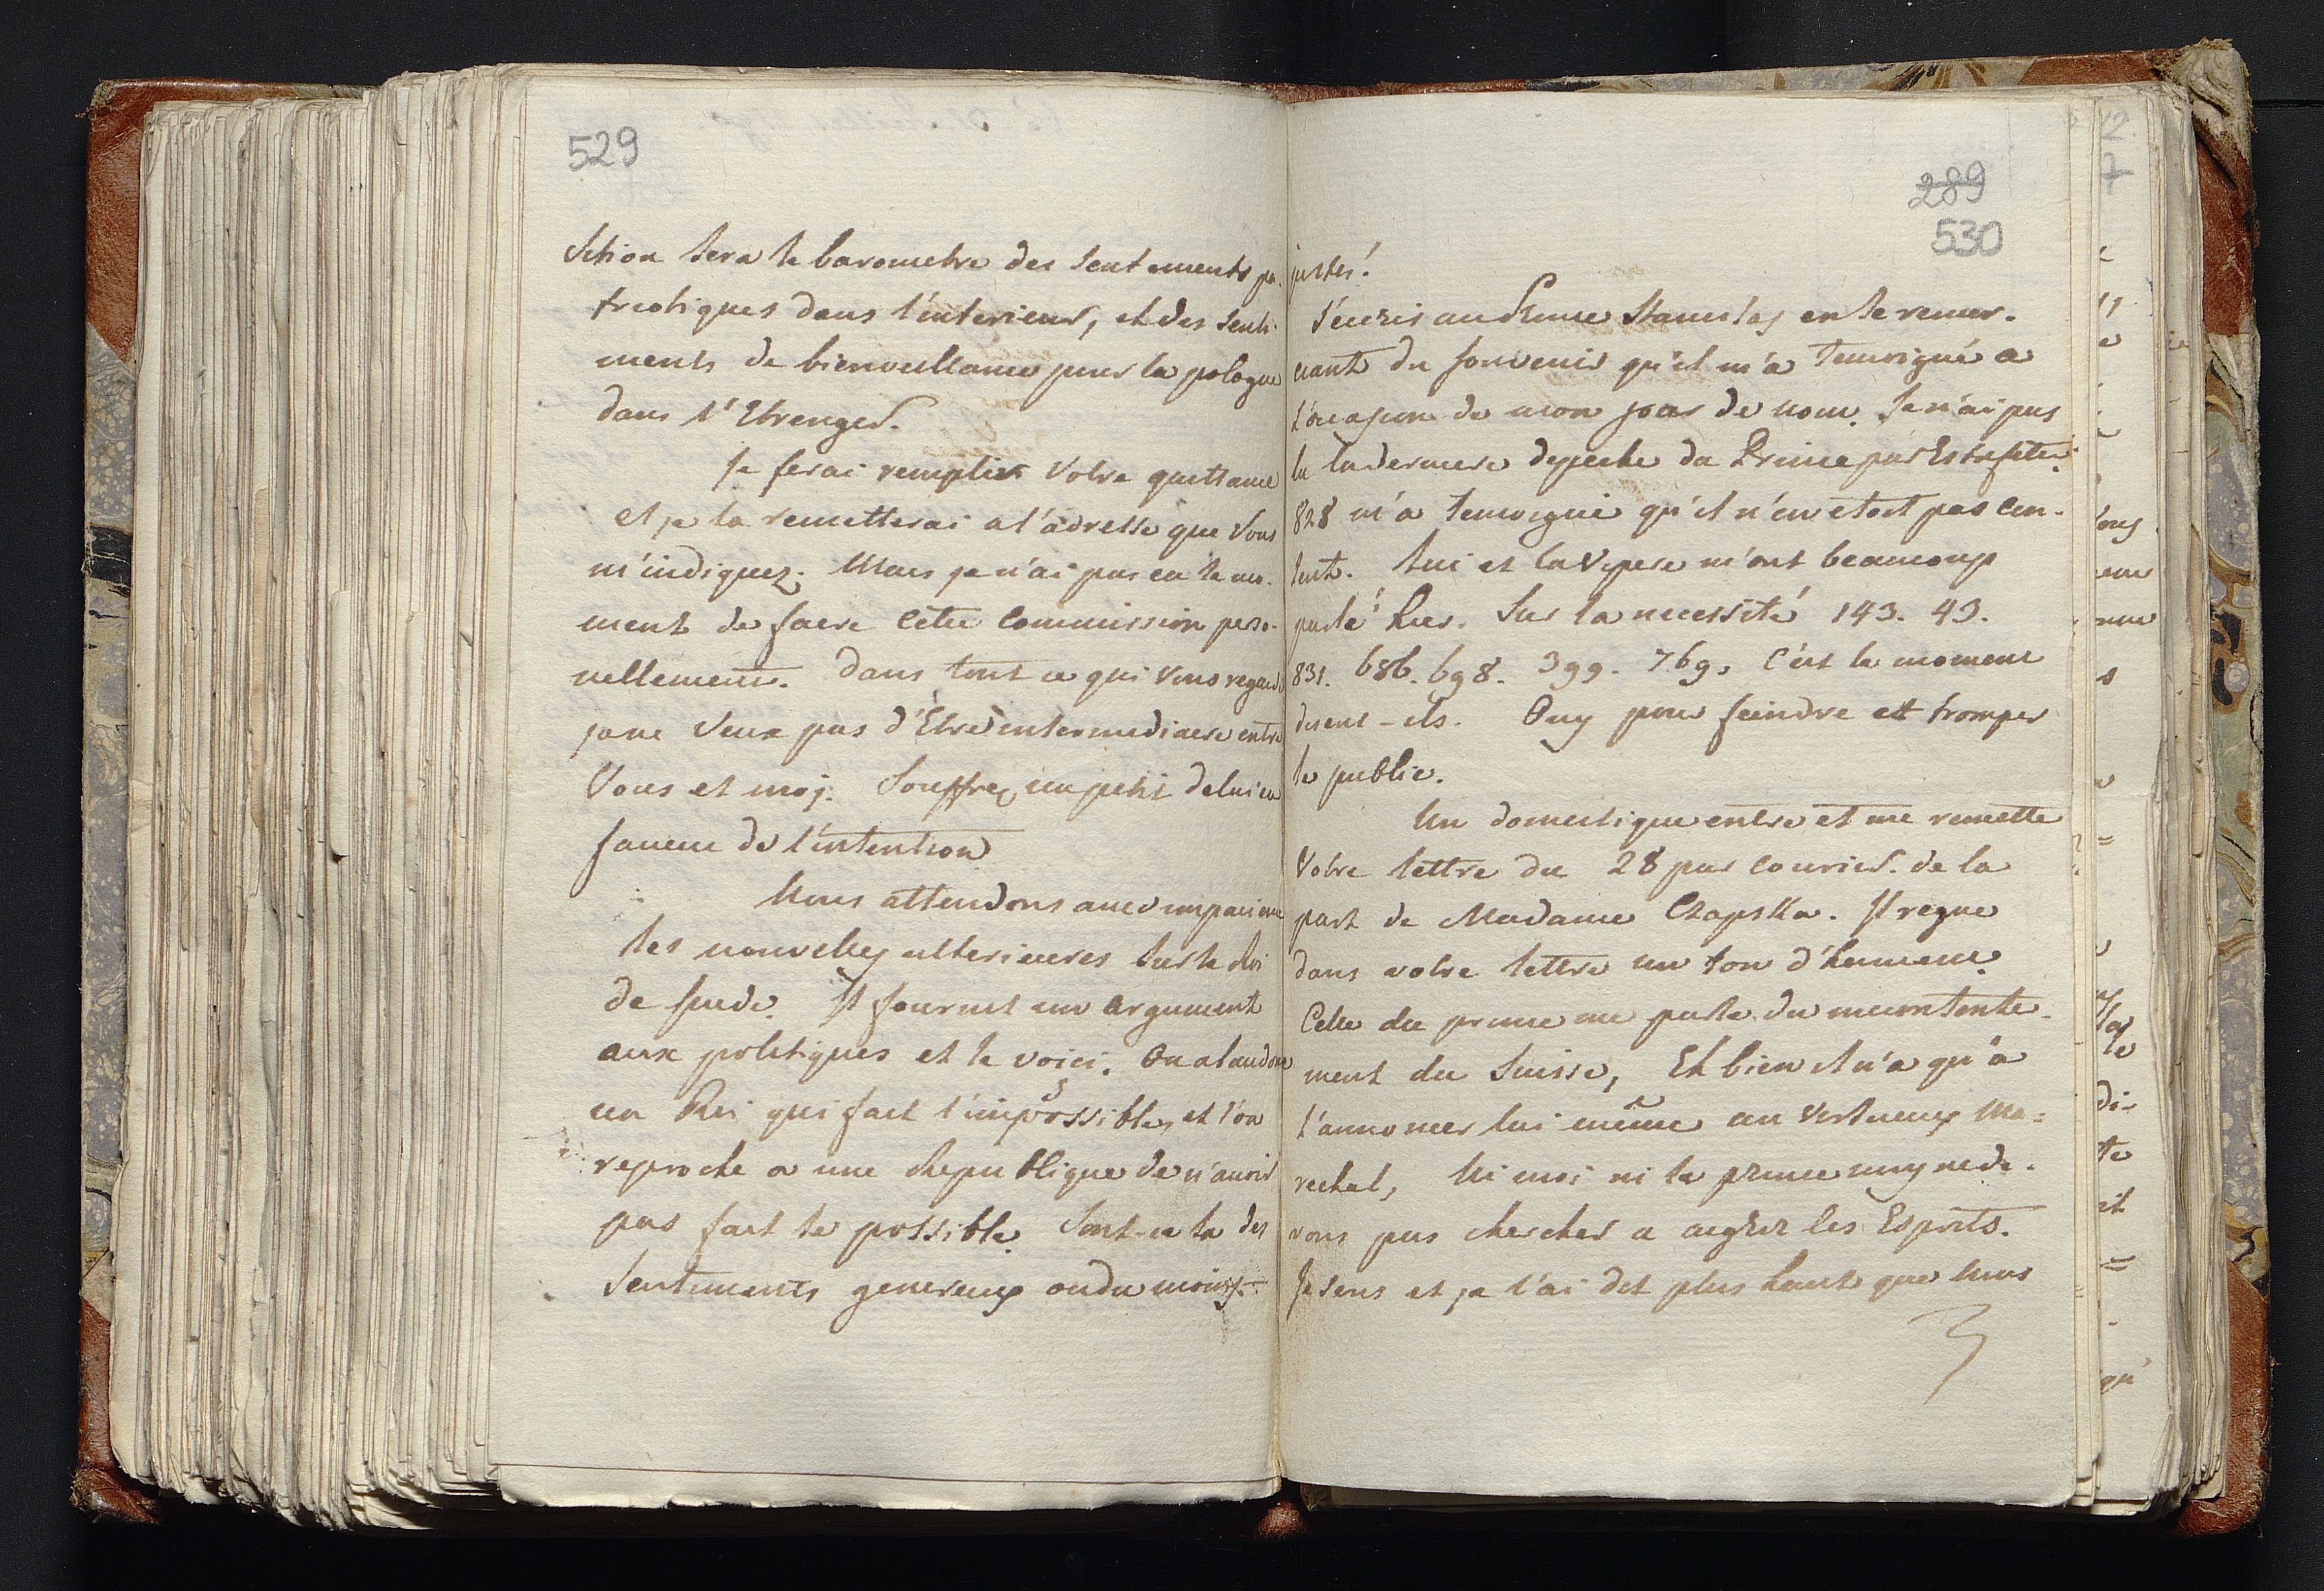 529
Sition sera le barometre des sentements pa-
treotiques dans l'interieur, et des senti-
ments de bienveillance pour la pologne
dans l'Etrenger.
Je ferai remplir Votre quettance
et je la remetterai a l'adresse que Vous
m'indiquez. Mais je n'ai pas eu le mo-
ment de faere cette commission perso-
nellement. Dans tout ce qui Vous regarde
je ne Veux pas d'Etre entermediaere entre
Vous et moj. Souffrez un petit delai en
faveur de l'intention
Nous attendons avec impacience
les nouvelles ulterieures sur le Roi
de suede. Il fournit un argument
aux politiques et le voici. On abandone
un Roi qui fait l'impossible, et l'on
reproche a une Republique de n'avoir
pas fait le possible. Sont-ce la des
Sentiments genereux ou du moins
289
530
justes!
J'écris au Prince Stanislas en le remer-
ciant du souvenir qu'il m'a temoigné a
l'ocasion de mon jour de nom. Je n'ai pas
lu la derniere depeche du Prince par Estafette.
828 m'a temoigné qu'il n'en etoit pas con-
tent. Lui et la Vipere m'ont beaucoup
parlé hier. Sur la necessité 143. 43.
831. 686. 698. 399. 769, c'est le moment
disent-ils. Ouy pour feindre et tromper
le public.
Un domestique entre et me remette
Votre lettre du 28 par courier de la
part de Madame Czapska. Il regne
dans votre lettre un ton d'humeur.
Celle du prince me parle du mecontente-
ment du Suisse, Eh bien il n'a qu'a
l'annoncer lui même au vertueux Ma-
rechal, Ni moi ni le prince nous ne de-
vons pas chercher a aigrir les Esprits.
Je sens et je l'ai dit plus haut que nous